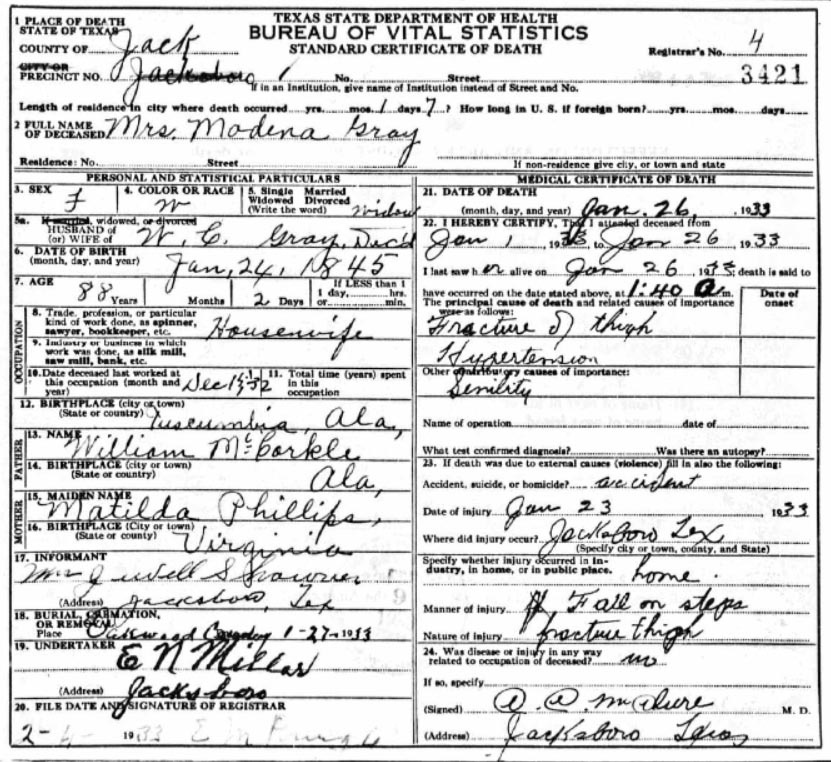 TEXAS STATE DEPARTMENT OF HEALTH
BUREAU OF VITAL STATISTICS
STANDARD CERTIFICATE OF DEATH
1 PLACE OF DEATH
STATE OF TEXAS
COUNTY OF Jack
Registrar's No. 4
3421
CITY OR
PRECINCT NO. Jacksboro 1 No. Street
If in an Institution, give name of Institution instead of Street and No.
Length of residence in city where death occurred yrs. mos. 1 days 7? How long in U. S. if foreign born? yrs. mos. days
2 FULL NAME
OF DECEASED Mrs. Modena Gray
Residence: No. Street
If non-residence give city, or town and state
PERSONAL AND STATISTICAL PARTICULARS
3. SEX F
4. COLOR OR RACE W
5. Single Married
Widowed Divorced
(Write the word) Widow
5a. If married, widowed, or divorced
HUSBAND of
(or) WIFE of W. C. Gray, Dec'd
6. DATE OF BIRTH
(month, day, and year) Jan, 24, 1845
7. AGE 88 Years Months 2 Days
If LESS than 1
1 day, hrs.
or min.
OCCUPATION
8. Trade, profession, or particular
kind of work done, as spinner,
sawyer, bookkeeper, etc. Housewife
9. Industry or business in which
work was done, as silk mill,
saw mill, bank, etc.
10. Date deceased last worked at
this occupation (month and
year) Dec
11. Total time (years) spent
in this
occupation
12. BIRTHPLACE (city or town)
(State or country) Tuscumbia, Ala,
FATHER
13. NAME
William McCorkle
14. BIRTHPLACE (city or town)
(State or country) Ala,
MOTHER
15. MAIDEN NAME
Matilda Phillips,
16. BIRTHPLACE (City or town)
(State or country) Virginia
17. INFORMANT
Mrs
(Address) Jacksboro, Tex
18. BURIAL, CREMATION,
OR REMOVAL
Place Oakwood 1-27-1933
19. UNDERTAKER
E N Millar
(Address) Jacksboro
20. FILE DATE AND SIGNATURE OF REGISTRAR
1933 E M
MEDICAL CERTIFICATE OF DEATH
21. DATE OF DEATH
(month, day, and year) Jan. 26, 1933
22. I HEREBY CERTIFY, That I attended deceased from
Jan 1, 1933, to Jan 26, 1933
I last saw her alive on Jan 26, 1933; death is said to
have occurred on the date stated above, at 1:40 a m.
The principal cause of death and related causes of importance
were as follows:
Date of
onset
Fracture of thigh
Hypertension
Other contributory causes of importance:
Senility
Name of operation date of
What test confirmed diagnosis? Was there an autopsy?
23. If death was due to external causes (violence) fill in also the following:
Accident, suicide, or homicide? accident
Date of injury Jan 23 1933
Where did injury occur? Jacksboro Tex
(Specify city or town, county, and State)
Specify whether injury occurred in in-
dustry, in home, or in public place. home.
Manner of injury Fall on steps
Nature of injury fracture thigh
24. Was disease or injury in any way
related to occupation of deceased? no
If so, specify
(Signed) A. A. McClure M. D.
(Address) Jacksboro Texas